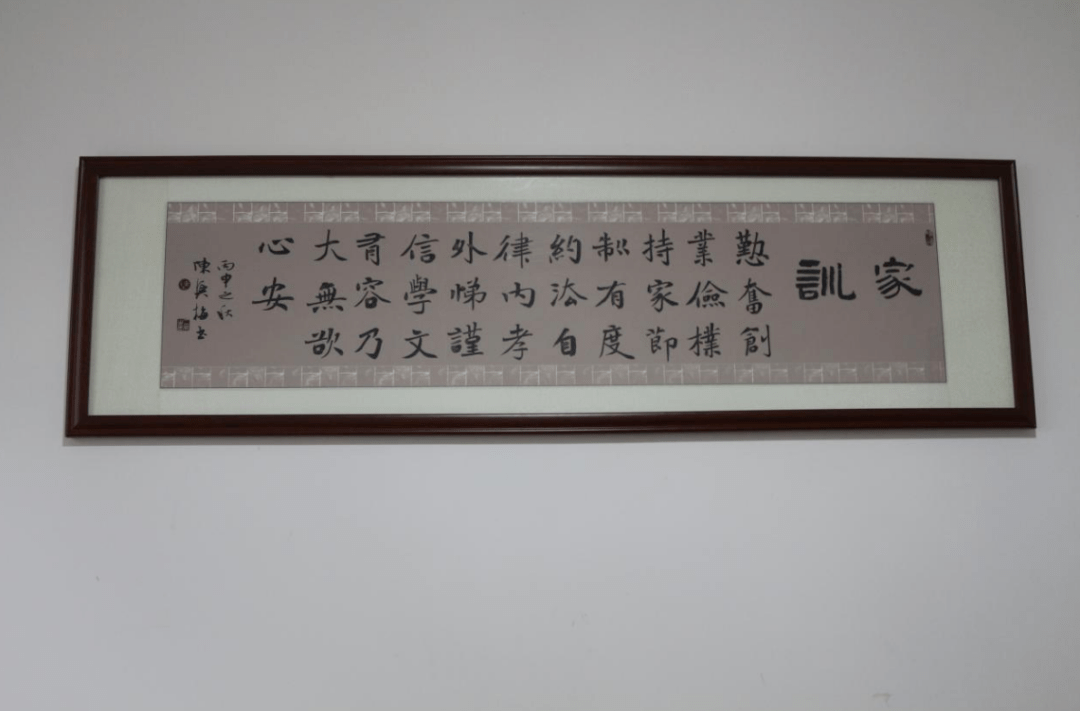 家訓
勤奮創
業儉樸
持家節
制有度
約法自
律内孝
外悌謹
信學文
有容乃
大無欲
心安
丙申之秋
陳英梅書